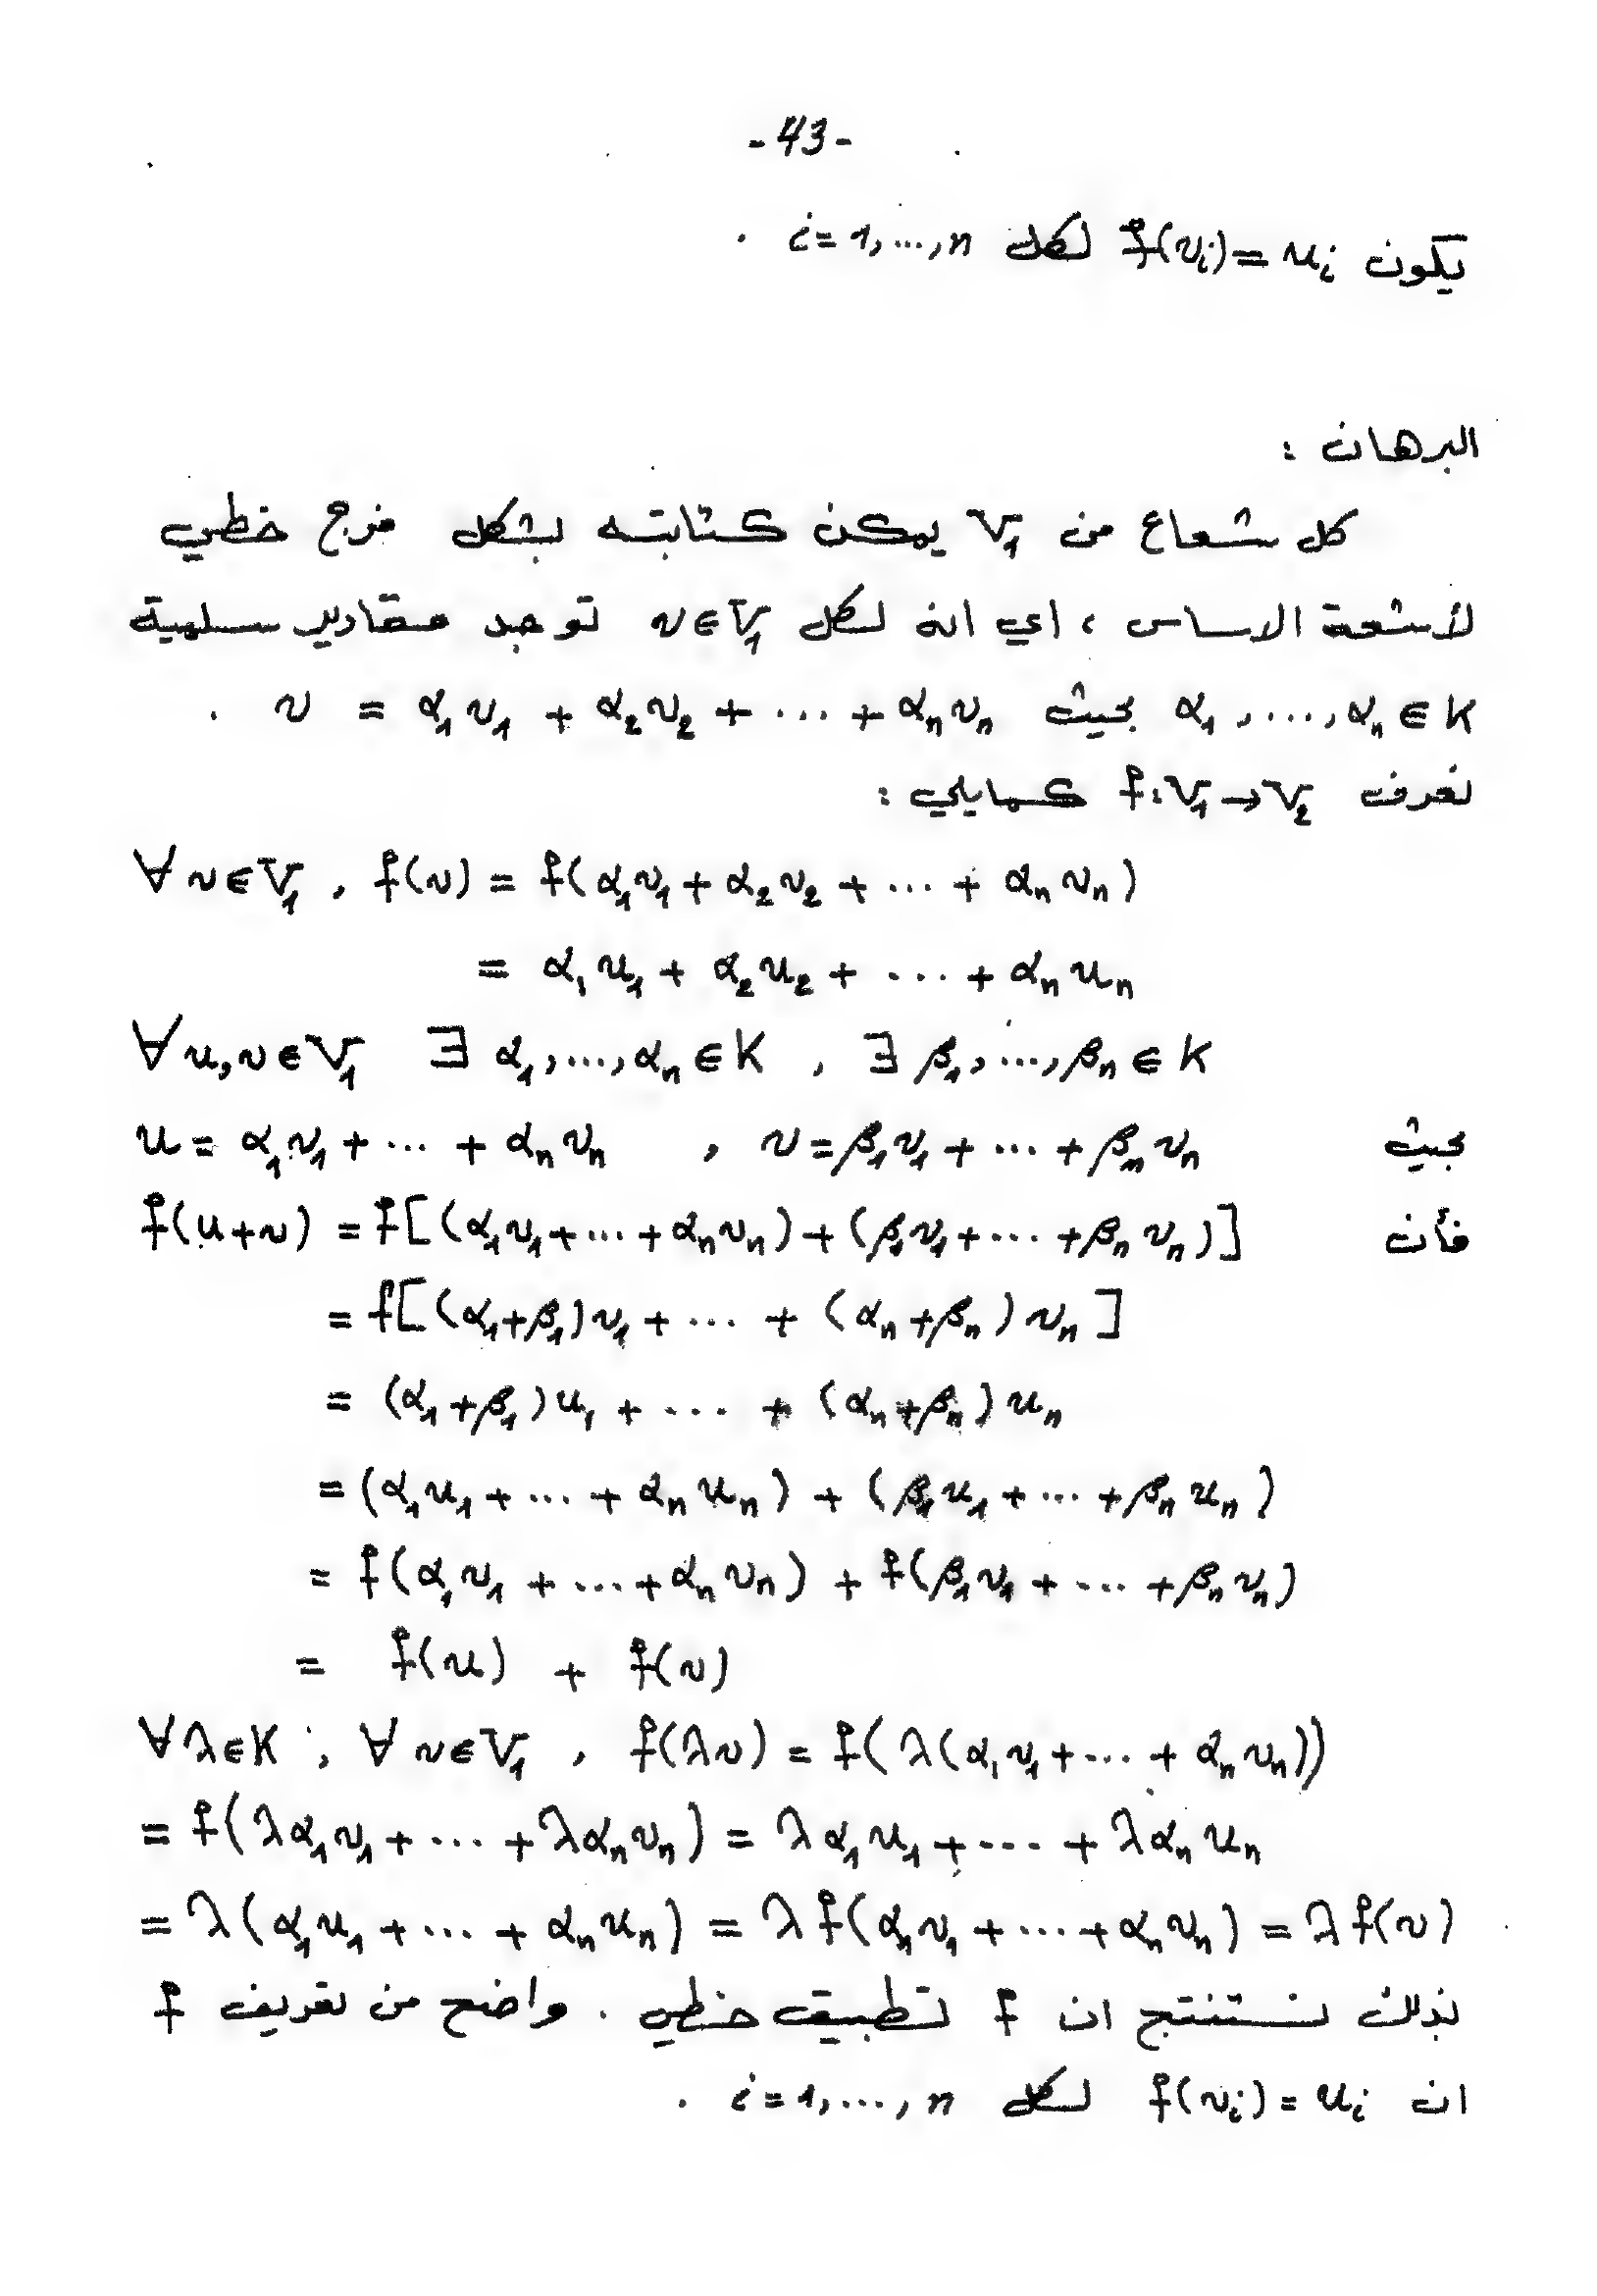 - 43 -
يكون f(v_i) = u_i لكل i = 1, ..., n .
البرهان :
كل شعاع من V₁ يمكن كتابته بشكل مزج خطي
لأشعة الاساس ، اي انه لكل v ∈ V₁ توجد مقادير سلمية
α₁ , ... , αₙ ∈ K بحيث v = α₁v₁ + α₂v₂ + ... + αₙvₙ .
نعرف f : V₁ → V₂ كمايلي :
∀ v ∈ V₁ , f(v) = f(α₁v₁ + α₂v₂ + ... + αₙvₙ)
= α₁u₁ + α₂u₂ + ... + αₙuₙ
∀ u, v ∈ V₁ ∃ α₁, ..., αₙ ∈ K , ∃ β₁, ..., βₙ ∈ K
بحيث u = α₁v₁ + ... + αₙvₙ , v = β₁v₁ + ... + βₙvₙ
فأن f(u+v) = f[(α₁v₁ + ... + αₙvₙ) + (β₁v₁ + ... + βₙvₙ)]
= f[(α₁+β₁)v₁ + ... + (αₙ+βₙ)vₙ]
= (α₁+β₁)u₁ + ... + (αₙ+βₙ)uₙ
= (α₁u₁ + ... + αₙuₙ) + (β₁u₁ + ... + βₙuₙ)
= f(α₁v₁ + ... + αₙvₙ) + f(β₁v₁ + ... + βₙvₙ)
= f(u) + f(v)
∀ λ ∈ K , ∀ v ∈ V₁ , f(λv) = f(λ(α₁v₁ + ... + αₙvₙ))
= f(λα₁v₁ + ... + λαₙvₙ) = λα₁u₁ + ... + λαₙuₙ
= λ(α₁u₁ + ... + αₙuₙ) = λf(α₁v₁ + ... + αₙvₙ) = λf(v)
بذلك نستنتج ان f تطبيق خطي . واضح من تعريف f
ان f(v_i) = u_i لكل i = 1, ..., n .